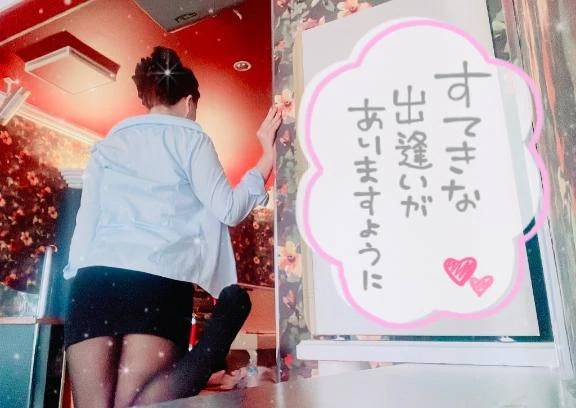 すてきな
出逢いが
ありますように